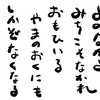 よのなかよ
みちこそなけれ
おもひいる
やまのおくにも
しかぞなくなる